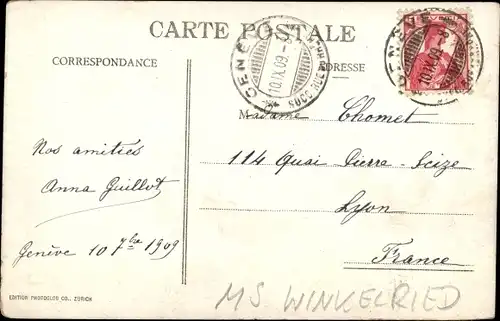 CARTE POSTALE
CORRESPONDANCE
ADRESSE
GENÈVE
10.IX.09.-8
GENÈVE
10.IX.09.-8
Madame Chomet
114 Quai Pierre-Scize
Lyon
France
Nos amitiés
Anna Guillot
Genève 10 7bre 1909
EDITION PHOTOGLOB CO., ZÜRICH
MS WINKELRIED